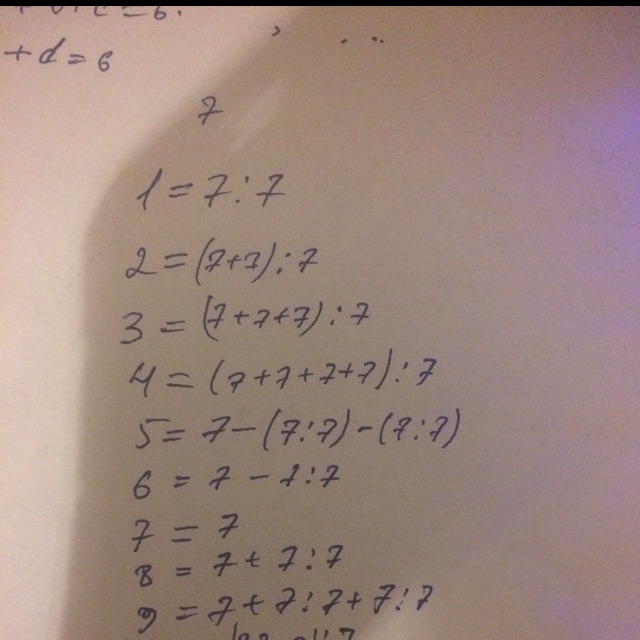 + d = 6
7
1 = 7 : 7
2 = (7+7) : 7
3 = (7+7+7) : 7
4 = (7+7+7+7) : 7
5 = 7 - (7:7) - (7:7)
6 = 7 - 7 : 7
7 = 7
8 = 7 + 7 : 7
9 = 7 + 7 : 7 + 7 : 7